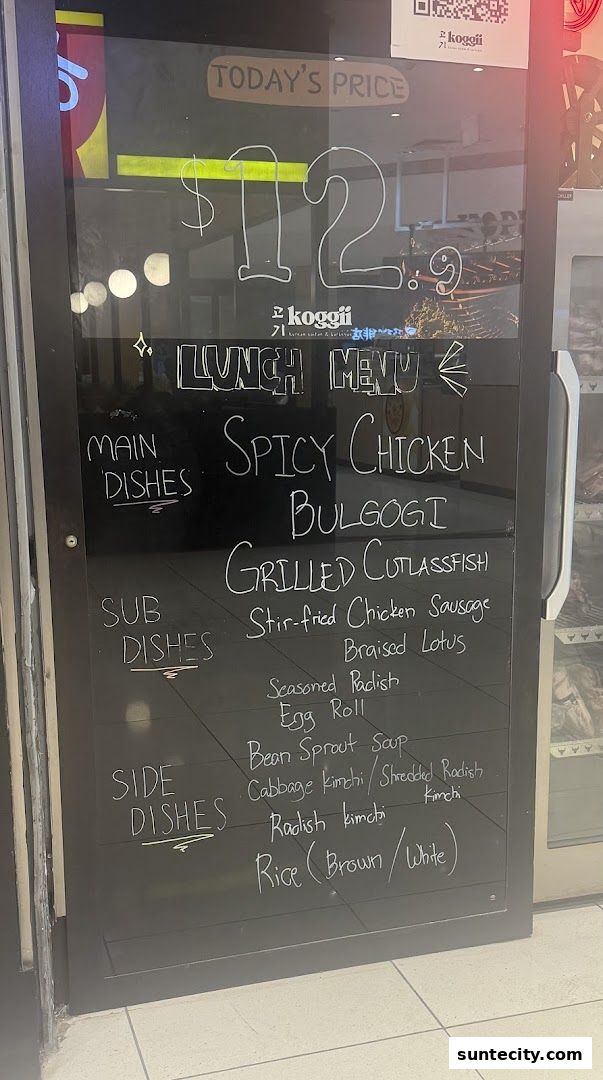 고기 koggii
TODAY'S PRICE
$12.9
고기 koggii
LUNCH MENU
MAIN DISHES
SPICY CHICKEN
BULGOGI
GRILLED CUTLASSFISH
SUB DISHES
Stir-fried Chicken Sausage
Braised Lotus
Seasoned Radish
Egg Roll
Bean Sprout Soup
SIDE DISHES
Cabbage Kimchi / Shredded Radish
Kimchi
Radish kimchi
Rice (Brown / White)
suntecity.com